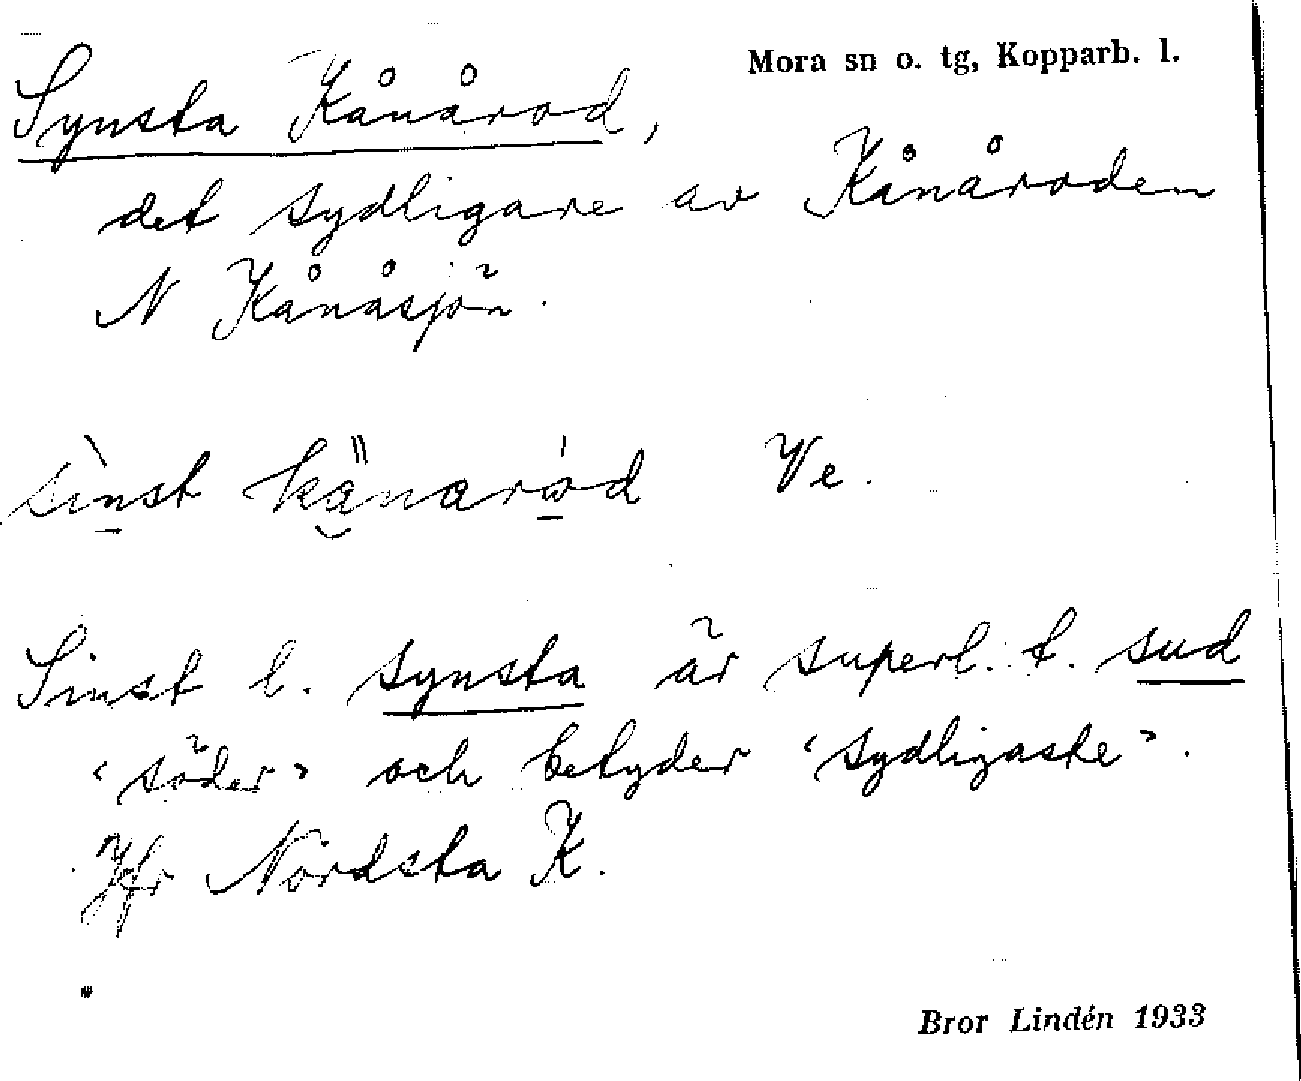 Mora sn o. tg, Kopparb. l.
Synsta Kånårod,
det sydligare av Kånåroden
N Kånåsjön.
sìnst känaròd Ve.
Sinst l. synsta är superl. t. sud
"söder" och betyder "sydligaste".
Jfr Nordsta K.
Bror Lindén 1933